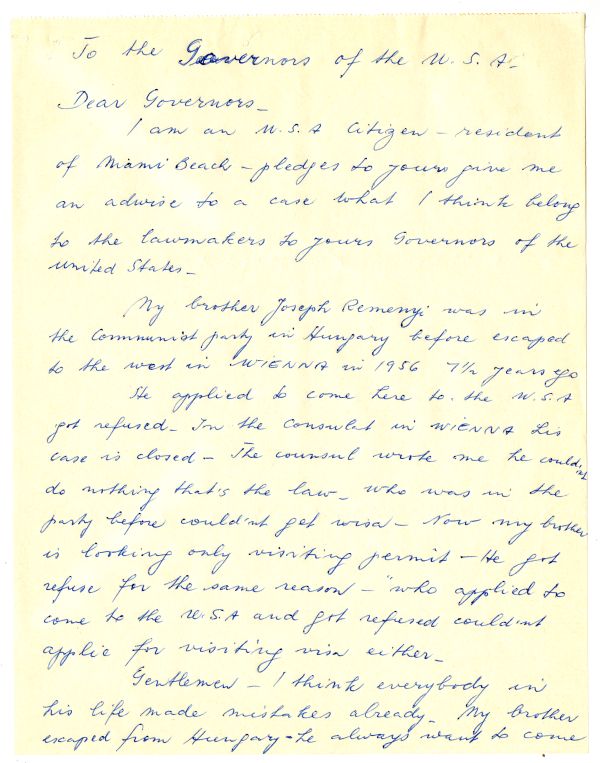 To the Governors of the U. S. A-
Dear Governors-
I am an U.S.A Citizen - resident
of Miami Beach - pledges to yours give me
an adwise to a case what I think belong
to the lawmakers to yours Governors of the
united States-
My brother Joseph Remenyi was in
the Communist party in Hungary before escaped
to the west in WIENNA in 1956 7½ years ago
He applied to come here to. the U.S.A
got refused - In the Consulat in WIENNA his
case is closed - The counsul wrote me he could'nt
do nothing that's the law - who was in the
party before could'nt get wisa - Now my brother
is looking only visiting permit - He got
refuse for the same reason - "who applied to
come to the U.S.A and got refused could'nt
applie for visiting visa either-
Gentlemen - I think everybody in
his life made mistakes already - My brother
escaped from Hungary - he always want to come